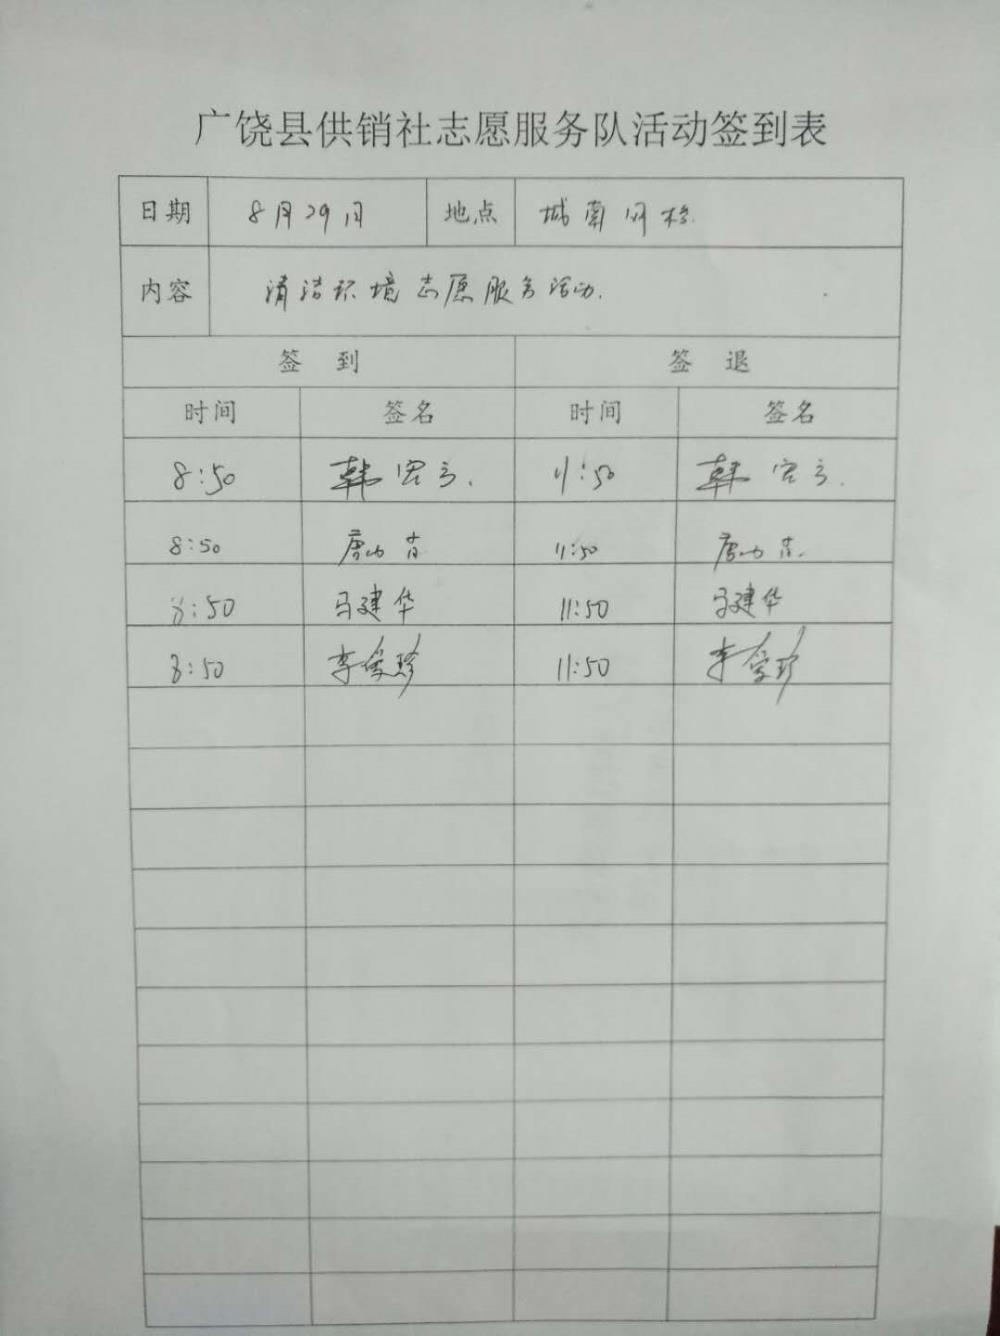 广饶县供销社志愿服务队活动签到表
日期 8月29日 地点 城南网格.
内容 清洁环境志愿服务活动.
签 到 签 退
时间 签名 时间 签名
8:50 韩 11:50 韩
8:50 唐 11:50 唐
8:50 马建华 11:50 马建华
8:50 李爱珍 11:50 李爱珍